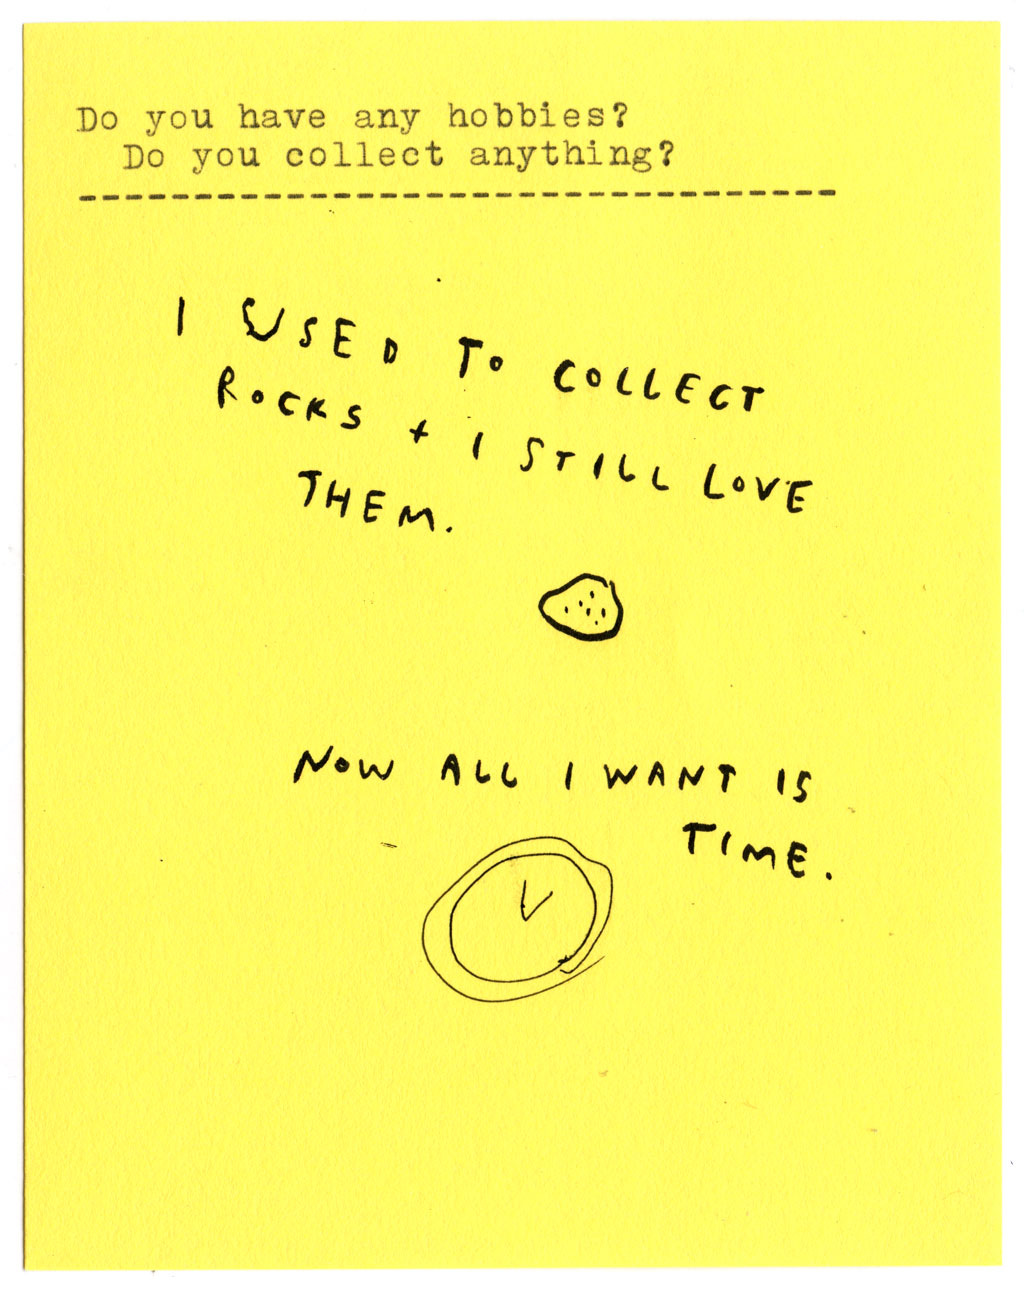 Do you have any hobbies?
Do you collect anything?
---------------------------------
I USED TO COLLECT
ROCKS + I STILL LOVE
THEM.
NOW ALL I WANT IS
TIME.